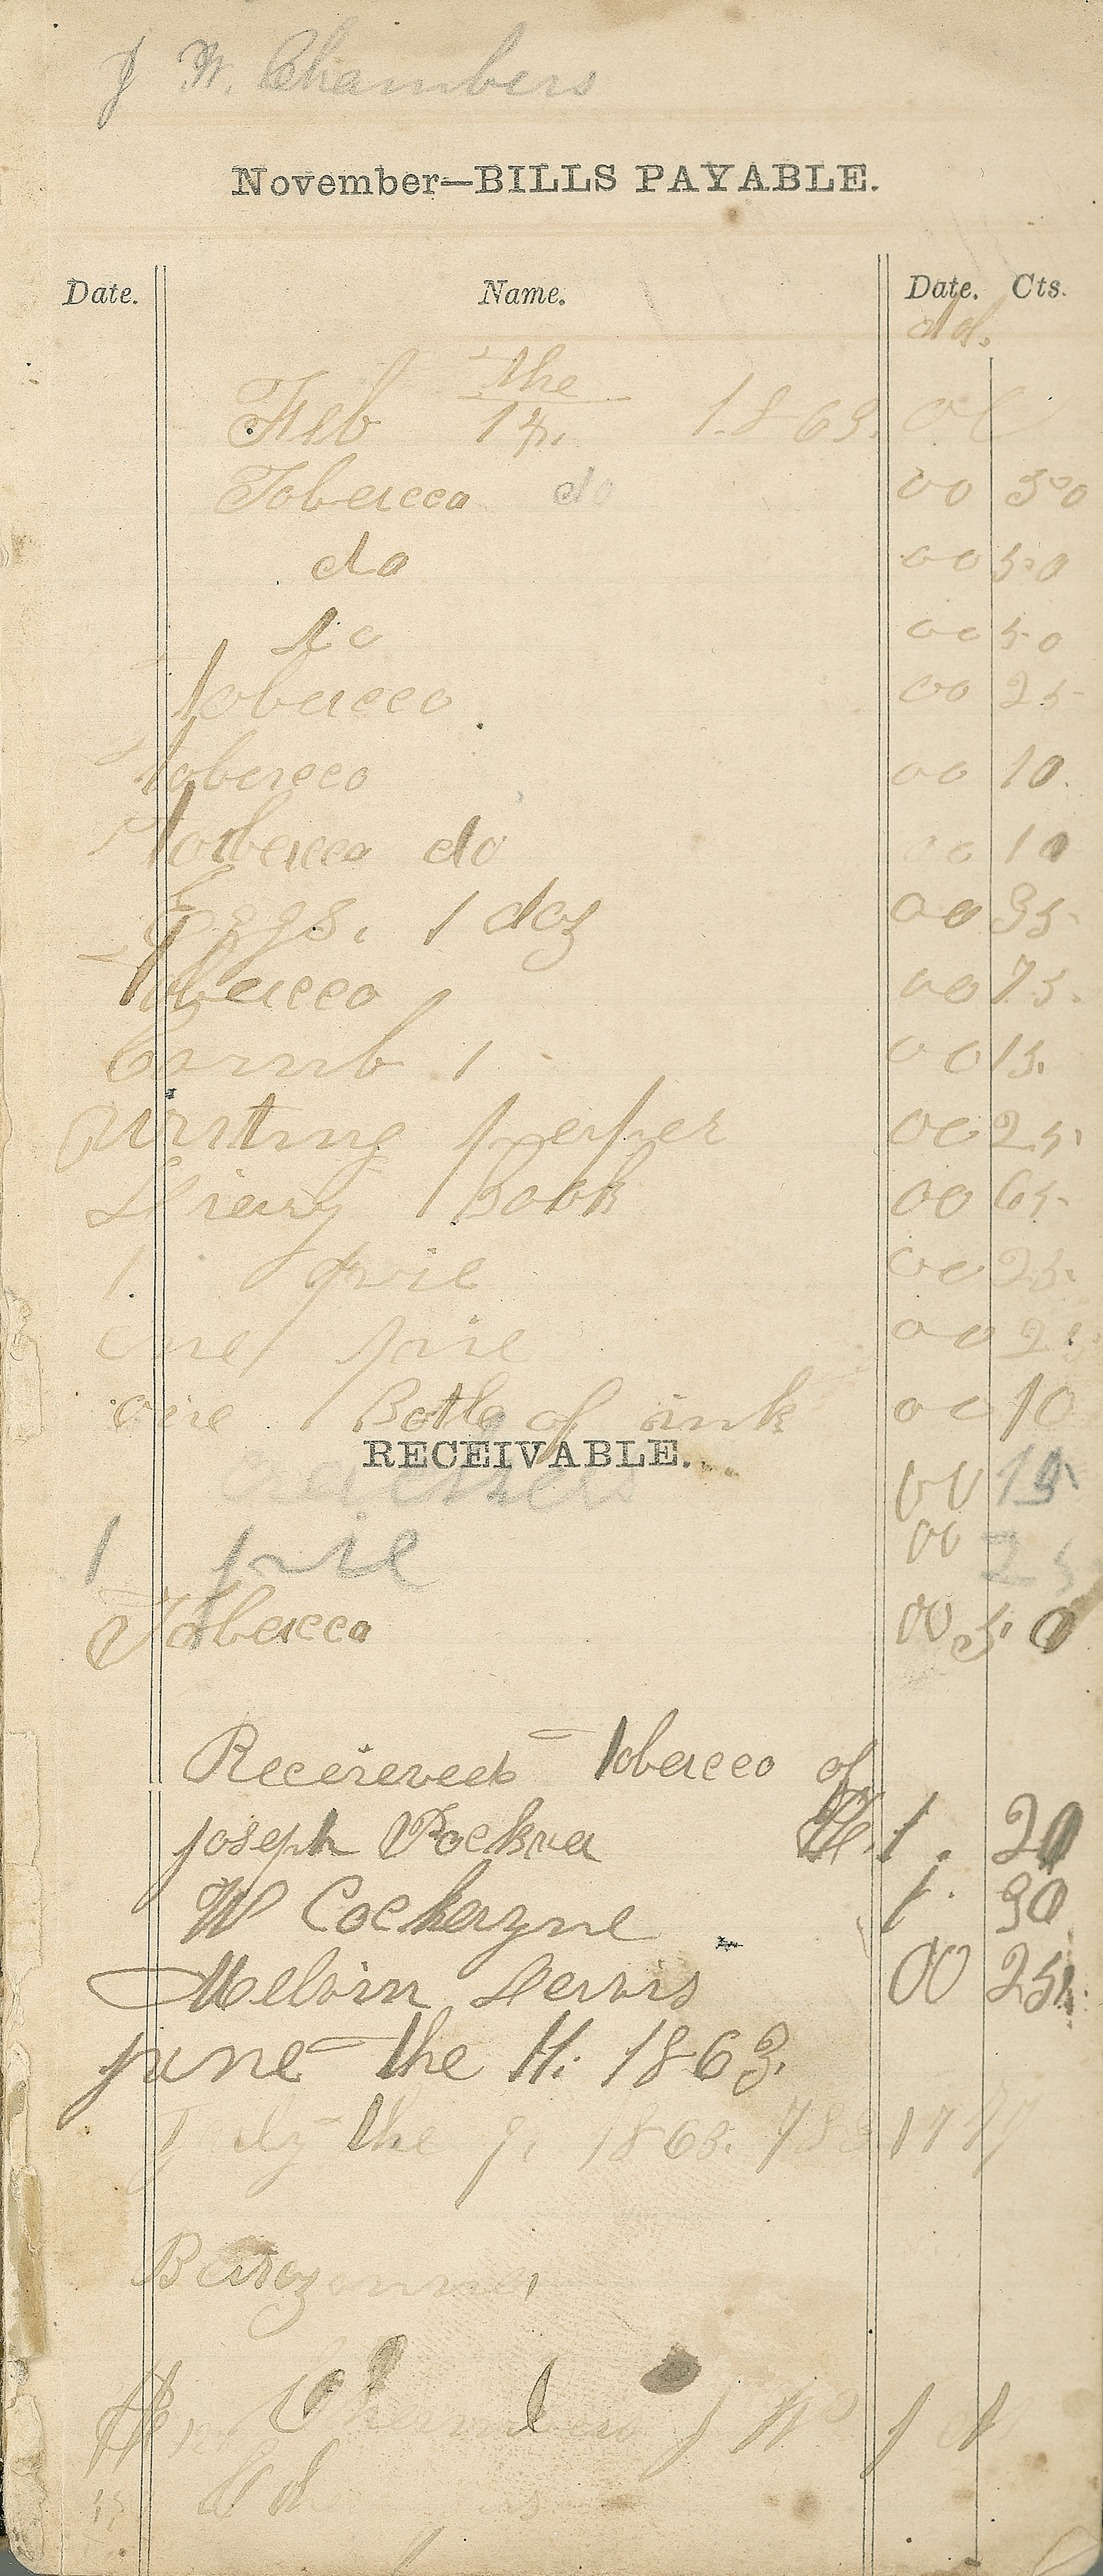 J W. Chambers
November—BILLS PAYABLE.
Date. Name. Date. Cts.
dol.
Feb the 14. 1863.
Tobacco do 00 50
do 00 50
do 00 50
Tobacco 00 25
tobacco 00 10.
Tobacco do 00 10
Eggs. 1 doz 00 35
Tobacco 00 75.
Comb 1 00 15.
writing paper 00 25.
Diary 1 Book 00 65
1. pie 00 25.
one pie 00 25
one Bottle of ink 00 10
RECEIVABLE.
00 15
1 pie 00 25
Tobacco 00 50
Receieved Tobacco of
Joseph 1. 20
W Cockayne 1. 30
Melvin 00 25.
June the 11. 1863.
July the 1863.
J W